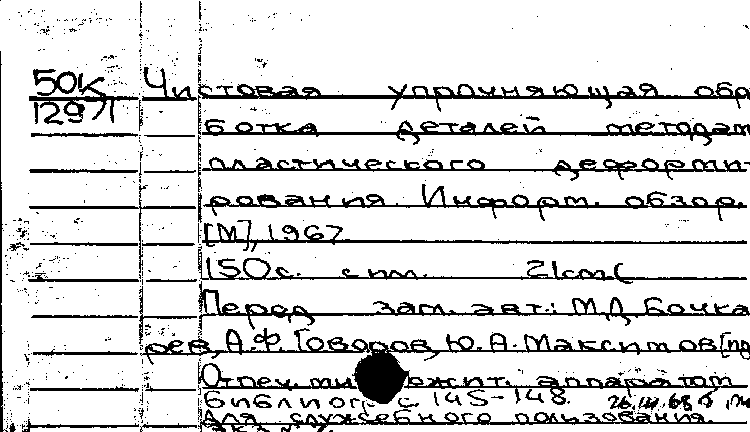 50К Чистовая упрочняющая обр
1297
ботка деталей методам
пластического деформи-
рования Информ. обзор.
[М], 1967
150с. с ил. 21см
Перед загл. авт.: М.Д. Бочка
рев, А.Ф. Говоров, Ю.А. Максимов [пр
Отпеч. аппаратом
Библиогр. с 145-148.
Для служебного пользования.